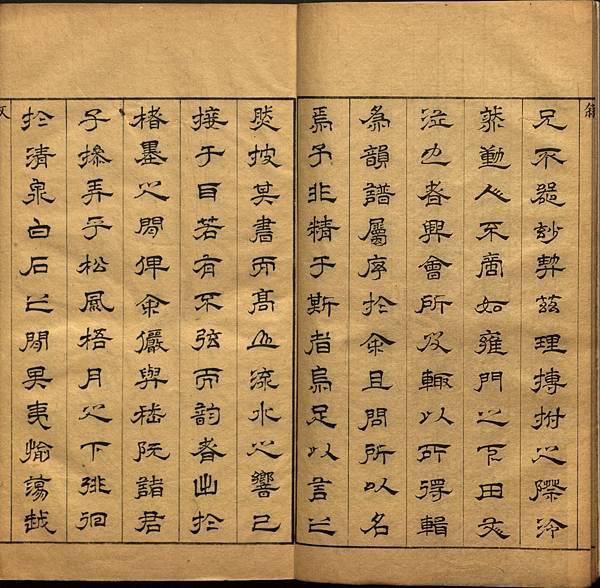 兄不器玅契茲理搏拊之際泠
然動人不啻如雍門之下田文
泣也者興會所及輒以所得輯
為韻譜屬序於余且問所以名
焉予非精于斯者烏足以言之
然披其書而高山流水之響已
接于目若有不弦而韵者出於
楮墨之閒俾余儼與嵇阮諸君
子摻弄乎松風梧月之下徘徊
於清泉白石之閒夷愉蕩越